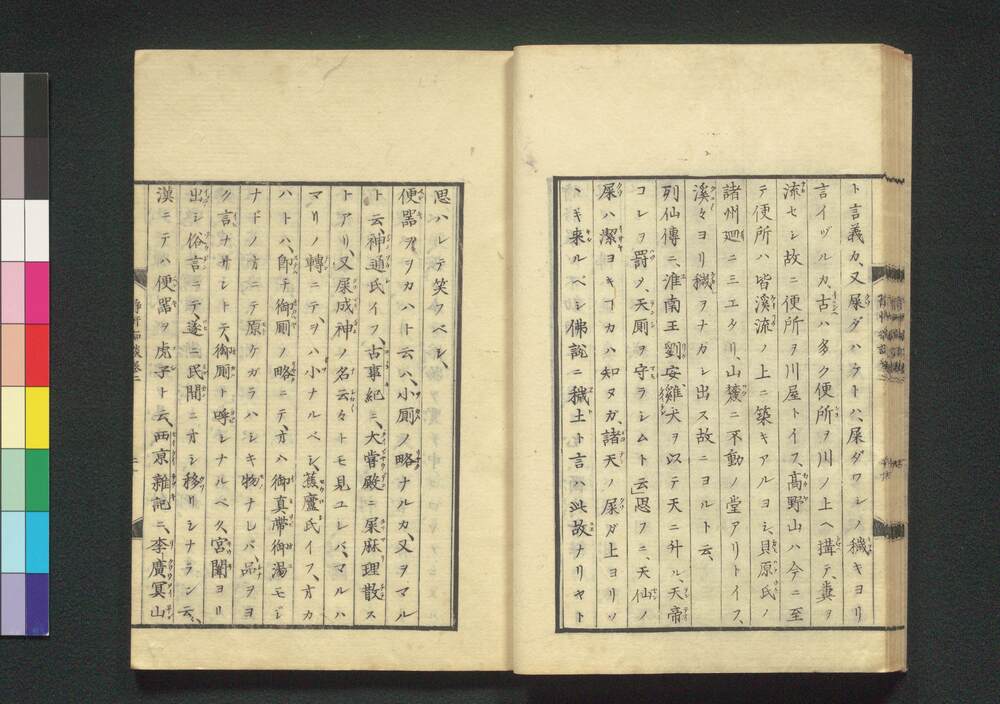 ト言義カ、又屎ダハクトハ、屎ダワシノ穢キヨリ
言イヅルカ、古ハ多ク便所ヲ川ノ上ヘ搆テ、糞ヲ
流セシ故ニ便所ヲ川屋トイフ、髙野山ハ今ニ至
テ便所ハ皆溪流ノ上ニ築キアルヨシ、貝原氏ノ
諸州廻ニ三エタリ、山麓ニ不動ノ堂アリトイフ、
溪々ヨリ穢ヲナカシ出ス故ニヨルト云、
列仙傳ニ、淮南王劉安、雞犬ヲ以テ天ニ升ル、天帝
コレヲ罸メ、天厠ヲ守ラシムト云」思フニ、天仙ノ
屎ハ潔ヨキコカハ知ヌガ、諸天ノ屎ガ上ヨリソ
ハギ来ルベシ佛說ニ穢土ト言ハ此故ナリヤト
思ハレテ笑フベシ、
便器ヲヲカハト云ハ、小厠ノ略ナルカ、又ヲマル
ト云、神通氏イフ、古事紀ニ、大嘗殿ニ屎麻理散ス
トアリ、又屎成神ノ名云々トモ見ユレバ、マルハ
マリノ轉ニテ、ヲハ小ナルベシ、蕉廬氏イフ、オカ
ハトハ、卽チ御厠ノ略ニテ、オハ御真帶御湯モシ
ナドノオニテ原ケガラハシキ物ナレバ、品ヲヨ
ク言ナサントテ、御厠ト呼シナルベク、宮闈ヨリ
出シ俗言ニテ、遂ニ民間ニオシ移リシナラン云、
漢ニテハ便器ヲ虎子ト云、西京雜記ニ、李廣冥山